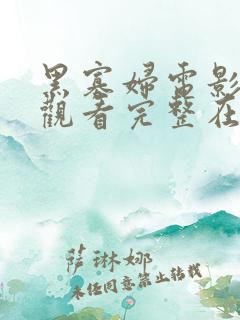 黑寡婦電影
觀看完整在
薩琳娜
未经同意禁止转载